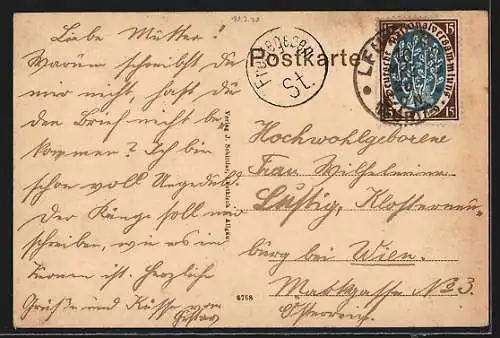 20.3.20
Liebe Mutter!
Warum schreibst du
mir nicht, hast du
den Brief nicht be-
kommen? Ich bin
schon voll Ungeduld.
Der soll mir
schreiben, wie es in
ist. Herzliche
Grüße und Küsse von
Gustav
Postkarte
St.
Deutsche Nationalversammlung
15 15
Verlag J.
Hochwohlgeborene
Frau Wilhelmine
Lustig, Klosterneu-
burg bei Wien.
Marktgasse No 3.
Österreich.
6768